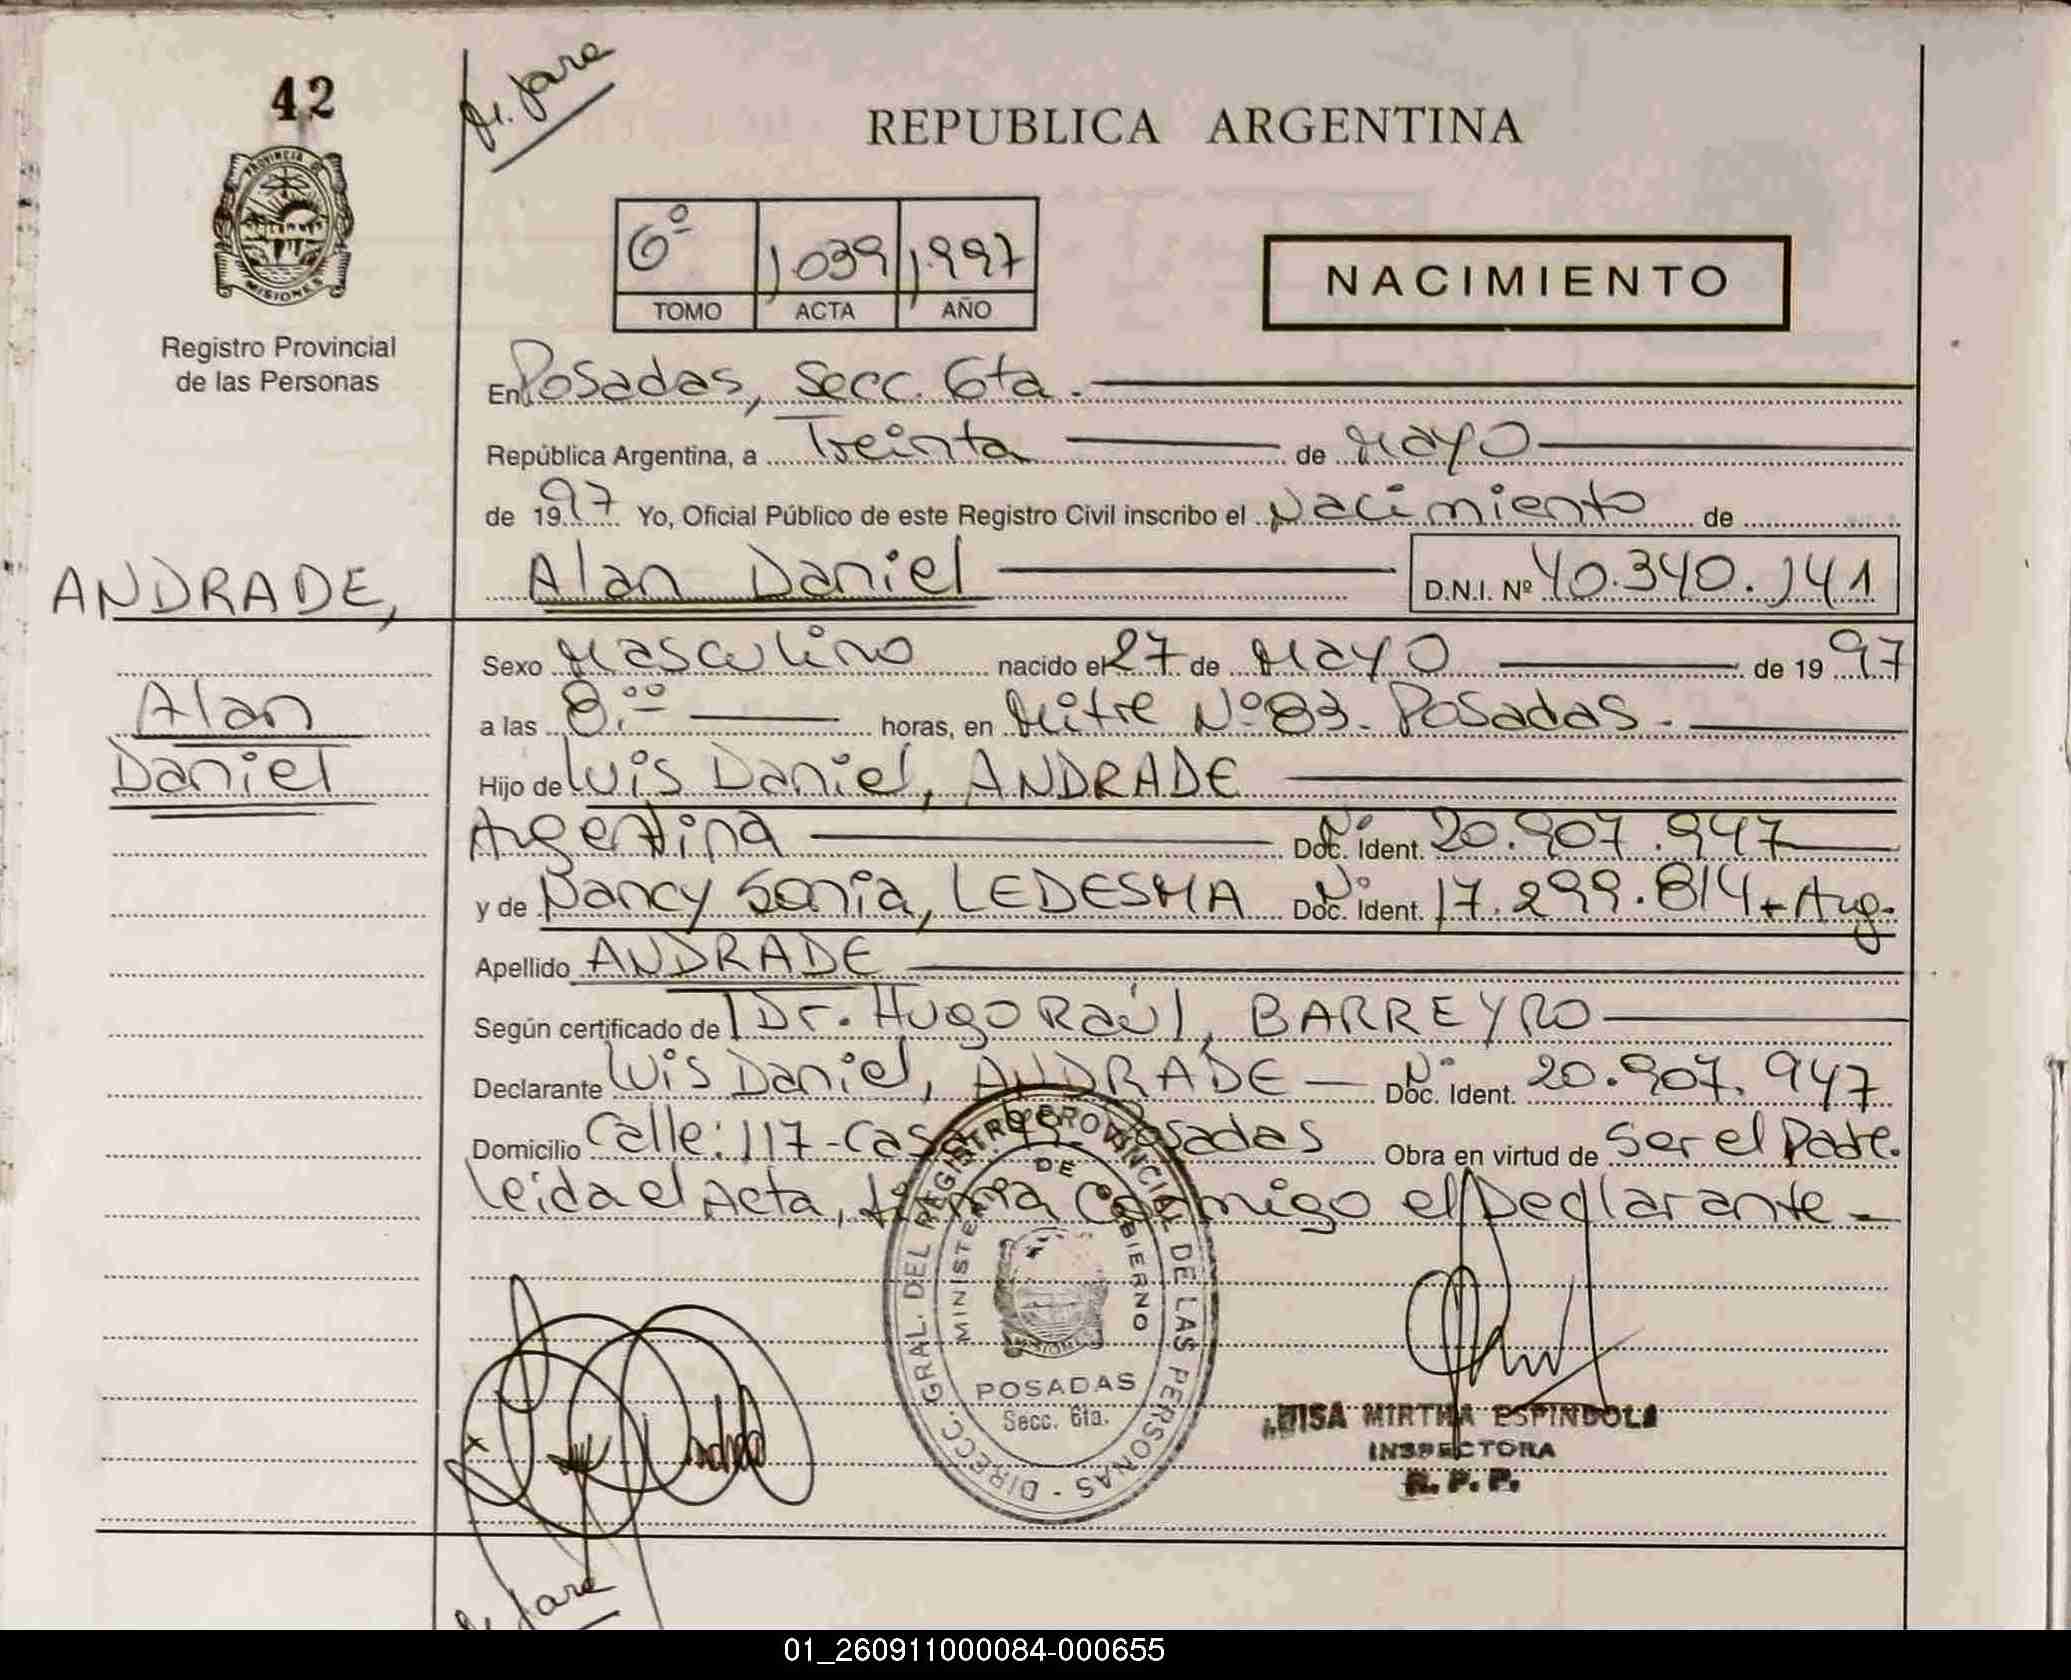 42
REPUBLICA ARGENTINA
PROVINCIA D
MISIONES
Registro Provincial
de las Personas
6º 1.039 1.997
TOMO ACTA AÑO
NACIMIENTO
En Posadas, Secc. 6ta.
República Argentina, a Treinta de Mayo
de 1997 Yo, Oficial Público de este Registro Civil inscribo el Nacimiento de
Alan Daniel D.N.I. Nº 40.340.141
ANDRADE,
Alan
Daniel
Sexo Masculino nacido el 27 de Mayo de 1997
a las 8.00 horas, en Mitre Nº 83 - Posadas -
Hijo de Luis Daniel, ANDRADE
Argentina Doc. Ident. Nº 20.907.947
y de Nancy Sonia, LEDESMA Doc. Ident. Nº 17.299.814 - Arg.
Apellido ANDRADE
Según certificado de Dr. Hugo Raúl, BARREYRO
Declarante Luis Daniel, ANDRADE — Doc. Ident. Nº 20.907.947
Domicilio Calle: 117 - Casa Posadas Obra en virtud de Ser el Padre.
Leida el Acta, firma conmigo el Declarante -
DIRECC. GRAL. DEL REGISTRO PROVINCIAL DE LAS PERSONAS -
MINISTERIO DE GOBIERNO
POSADAS
Secc. 6ta.
LUISA MIRTHA ESPINDOLA
INSPECTORA
R. P. P.
01_260911000084-000655